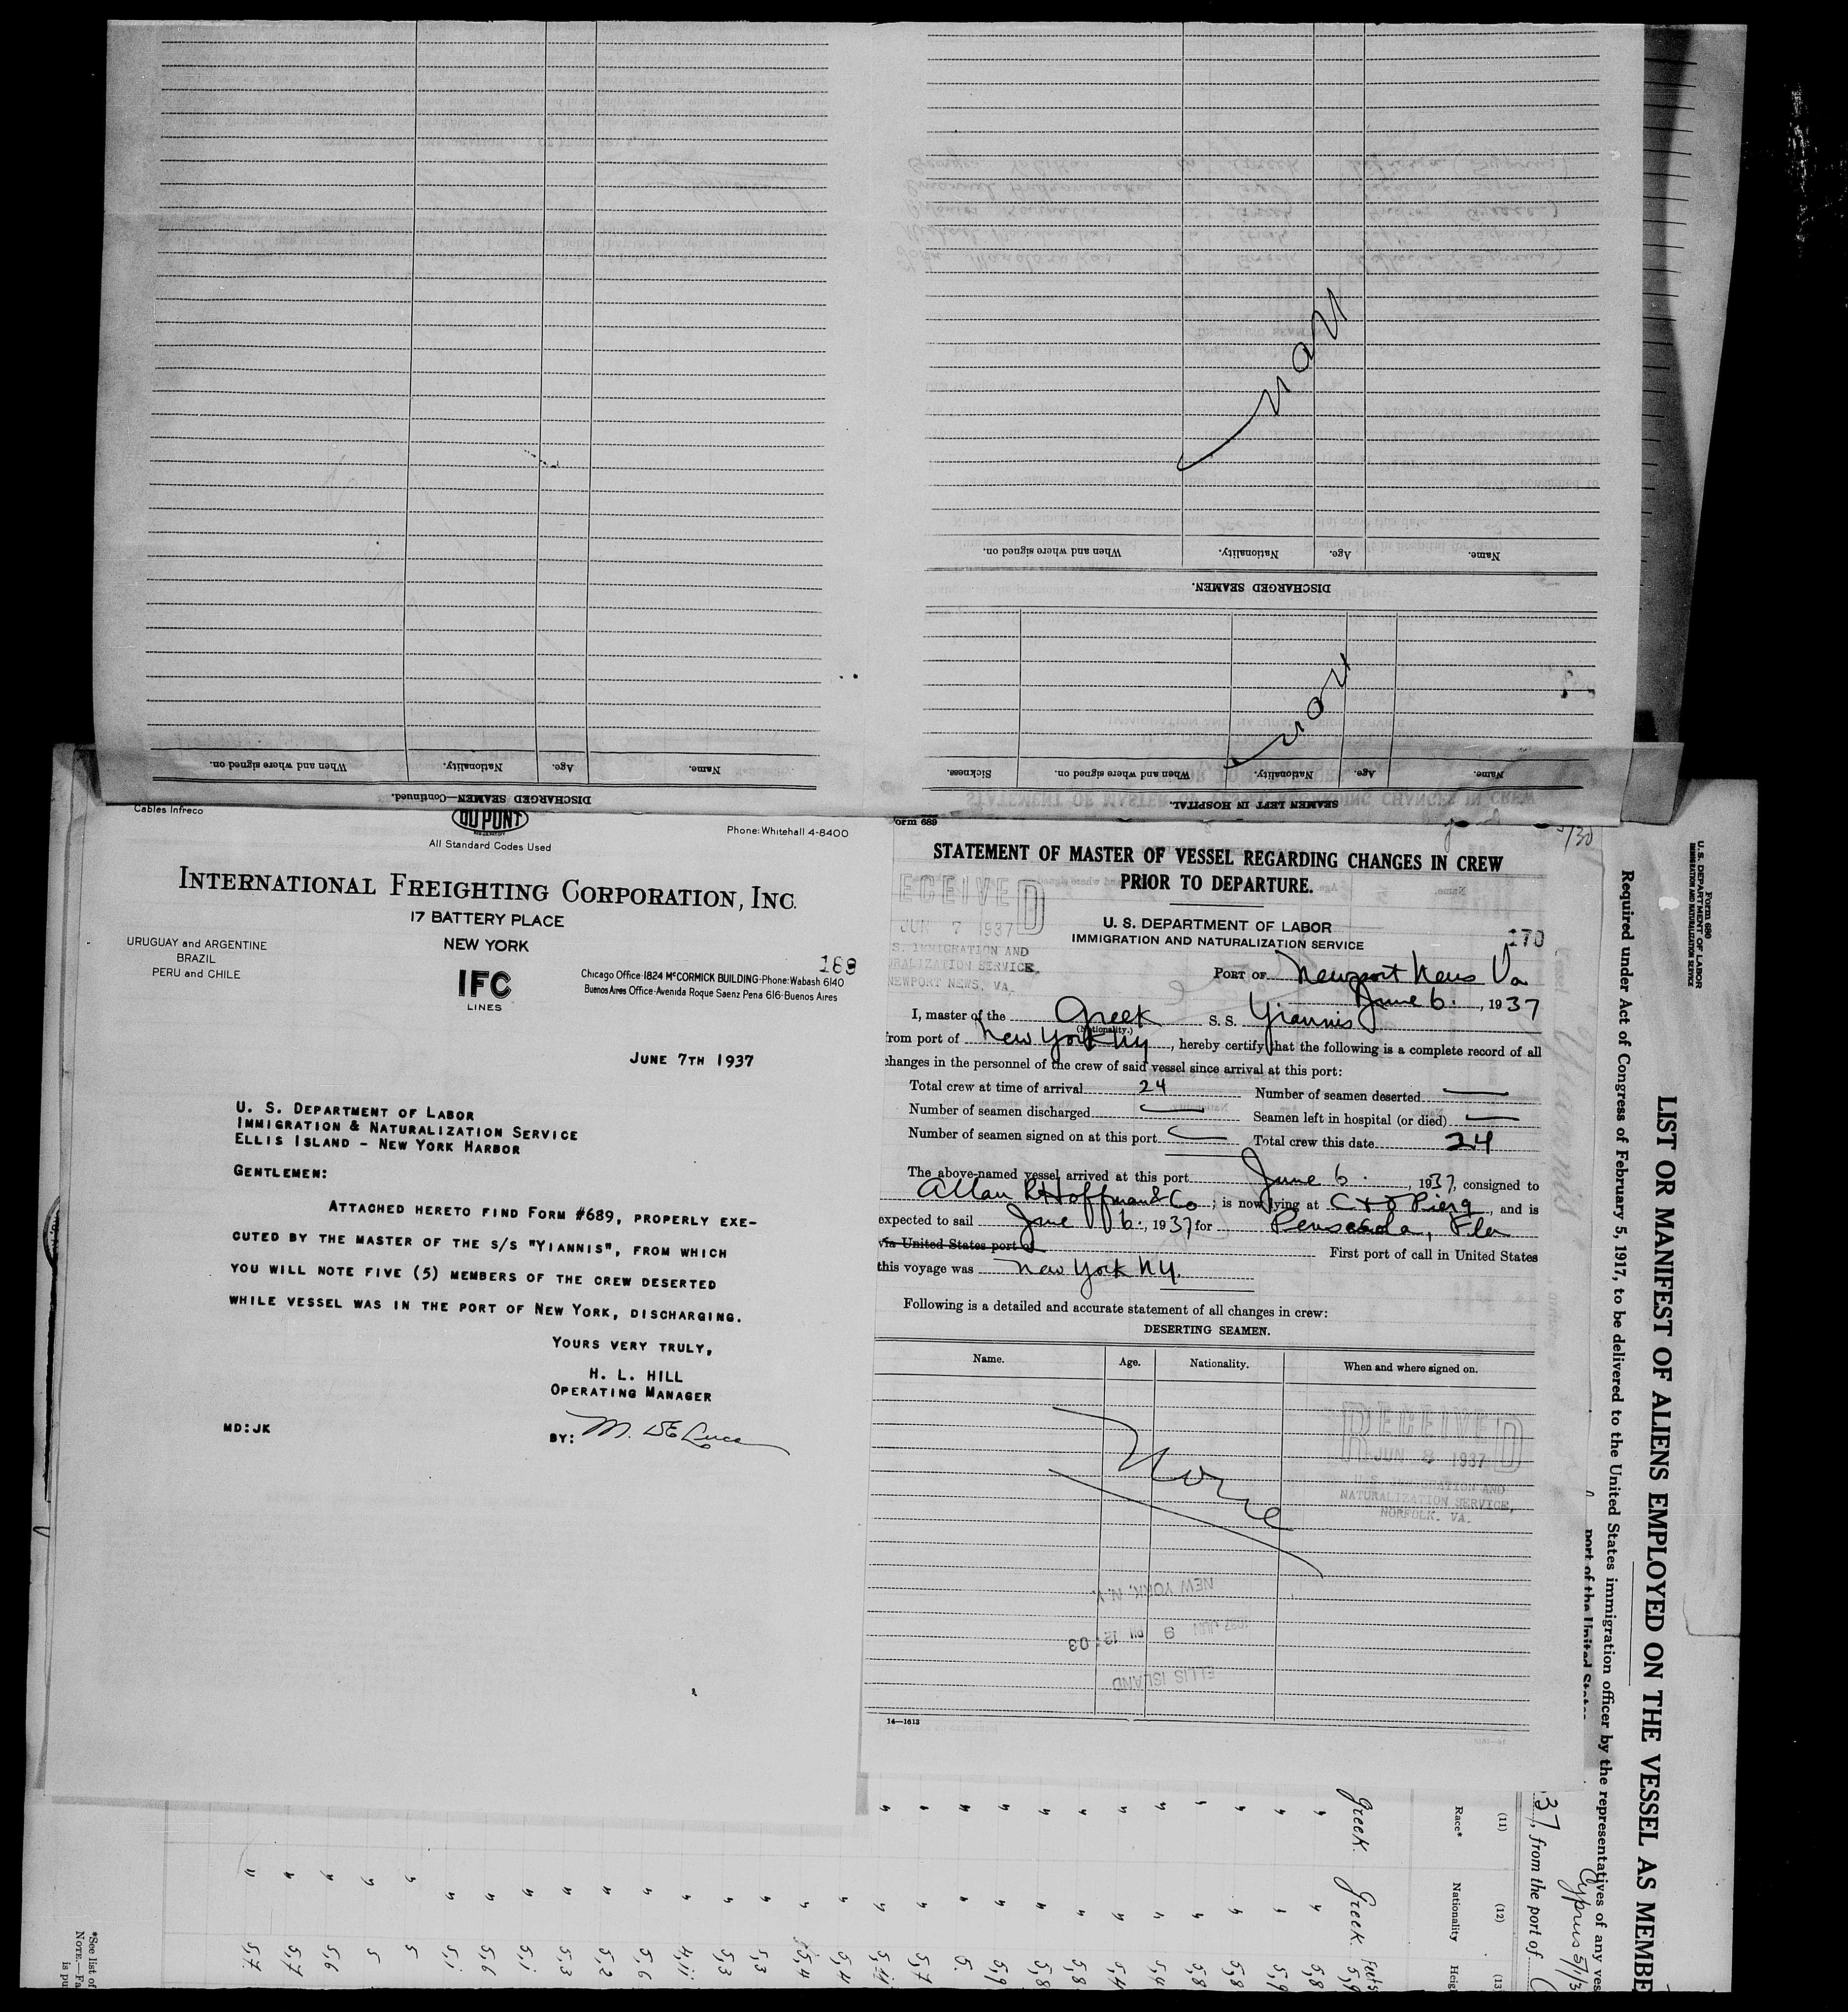 When and where signed on.
Nationality.
Age.
Name.
DISCHARGED SEAMEN—Continued.
When and where signed on.
Nationality.
Age.
Name.
DISCHARGED SEAMEN.
Sickness.
When and where signed on.
Nationality.
Age.
Name.
SEAMEN LEFT IN HOSPITAL.
Cables Infreco
DU PONT
Phone: Whitehall 4-8400
All Standard Codes Used
INTERNATIONAL FREIGHTING CORPORATION, INC.
17 BATTERY PLACE
NEW YORK
URUGUAY and ARGENTINE
BRAZIL
PERU and CHILE
IFC
LINES
169
Chicago Office-1824 McCORMICK BUILDING-Phone: Wabash 6140
Buenos Aires Office-Avenida Roque Saenz Pena 616-Buenos Aires
JUNE 7TH 1937
U. S. DEPARTMENT OF LABOR
IMMIGRATION & NATURALIZATION SERVICE
ELLIS ISLAND - NEW YORK HARBOR
GENTLEMEN:
ATTACHED HERETO FIND FORM #689, PROPERLY EXE-
CUTED BY THE MASTER OF THE S/S "YIANNIS", FROM WHICH
YOU WILL NOTE FIVE (5) MEMBERS OF THE CREW DESERTED
WHILE VESSEL WAS IN THE PORT OF NEW YORK, DISCHARGING.
YOURS VERY TRULY,
H. L. HILL
OPERATING MANAGER
MD:JK
BY: M. DeLuca
orm 689
STATEMENT OF MASTER OF VESSEL REGARDING CHANGES IN CREW
PRIOR TO DEPARTURE.
U. S. DEPARTMENT OF LABOR
IMMIGRATION AND NATURALIZATION SERVICE
170
ECEIVED
JUN 7 1937
S. IMMIGRATION AND
RALIZATION SERVICE,
NEWPORT NEWS, VA.
PORT OF Newport News Va
June 6, 1937
I, master of the Greek S. S. Yiannis
(Nationality.)
from port of New York NY, hereby certify that the following is a complete record of all
changes in the personnel of the crew of said vessel since arrival at this port:
Total crew at time of arrival 24 Number of seamen deserted —
Number of seamen discharged — Seamen left in hospital (or died) —
Number of seamen signed on at this port — Total crew this date 24
The above-named vessel arrived at this port June 6, 1937, consigned to
Allan Hoffman & Co; is now lying at C+O Pier 9, and is
expected to sail June 6, 1937 for Pensacola, Fla
via United States port of First port of call in United States
this voyage was New York NY.
Following is a detailed and accurate statement of all changes in crew:
DESERTING SEAMEN.
Name. Age. Nationality. When and where signed on.
None
RECEIVED
JUN 8 1937
U.S. IMMIGRATION AND
NATURALIZATION SERVICE,
NORFOLK, VA.
NEW YORK, N.Y.
1937 JUN 9 PM 12:03
ELLIS ISLAND
14—1613
Form 680
U. S. DEPARTMENT OF LABOR
IMMIGRATION AND NATURALIZATION SERVICE
LIST OR MANIFEST OF ALIENS EMPLOYED ON THE VESSEL AS MEMBE
Required under Act of Congress of February 5, 1917, to be delivered to the United States immigration officer by the representatives of any ves
port of the United States
Cyprus 5/1/3
37, from the port of
(11) (12) (13)
Race* Nationality Heig
Greek Greek Feets 5,9
" " 5,8
" " 5,9
" " 5,8
" " 5,8
" " 5,4
" " 5,4
" " 5,8
" " 5,8
" " 5,9
" " 5.
" " 5,7
" " 5,4
" 5,4
" 5,4
" 5,3
" 5,3
" 4,11
" 5,6
" 5,2
" 5,3
" 5,1
" 5,6
" 5,1
" 5
" 5
" 5,6
" 5,7
" 5,7
*See list of
NOTE.—Fa
is pu